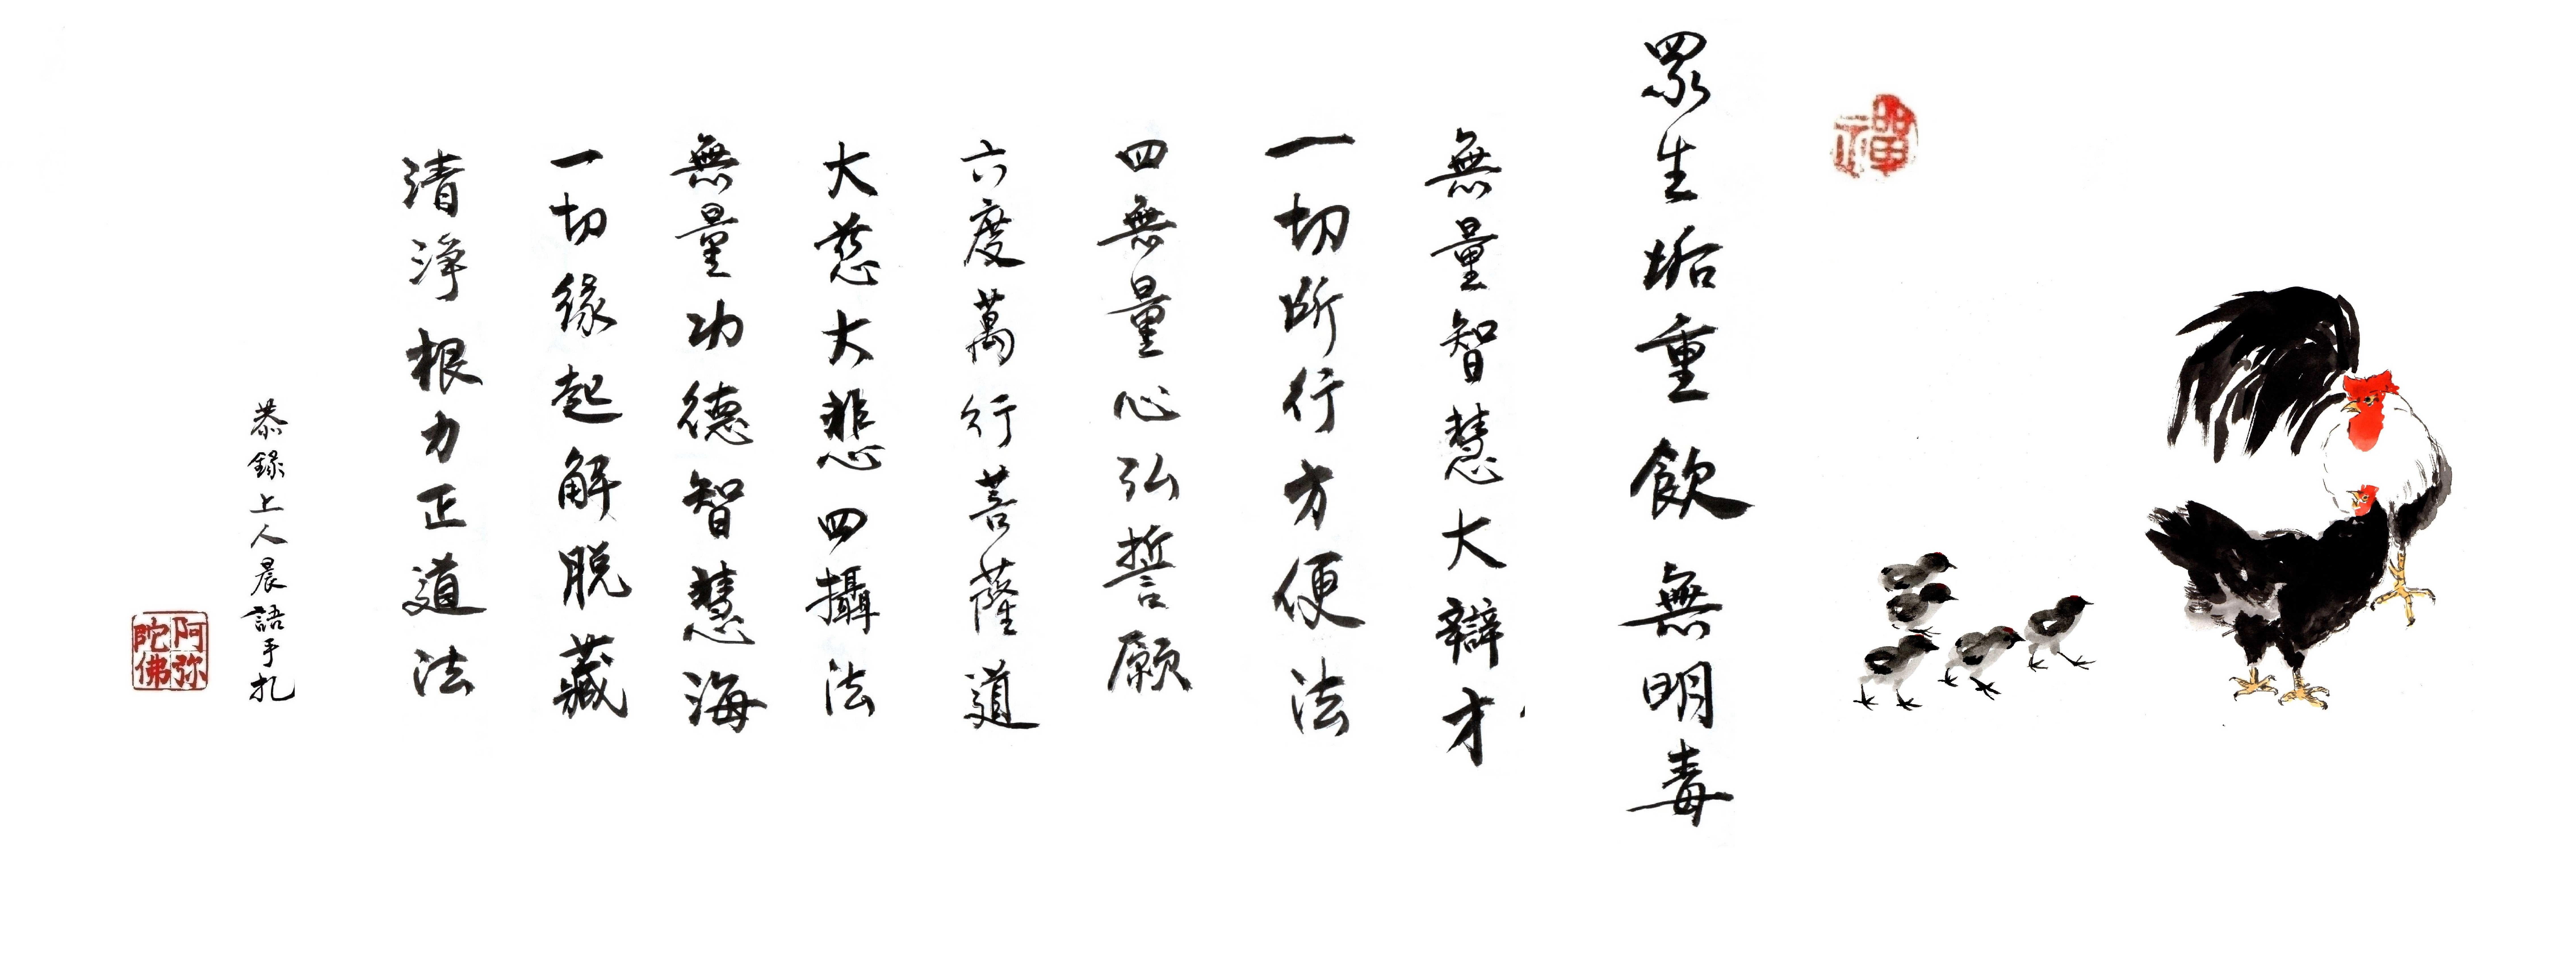 禪
眾生垢重飲無明毒
無量智慧大辯才
一切所行方便法
四無量心弘誓願
六度萬行菩薩道
大慈大悲四攝法
無量功德智慧海
一切緣起解脫藏
清淨根力正道法
恭錄上人晨語手札
阿弥陀佛